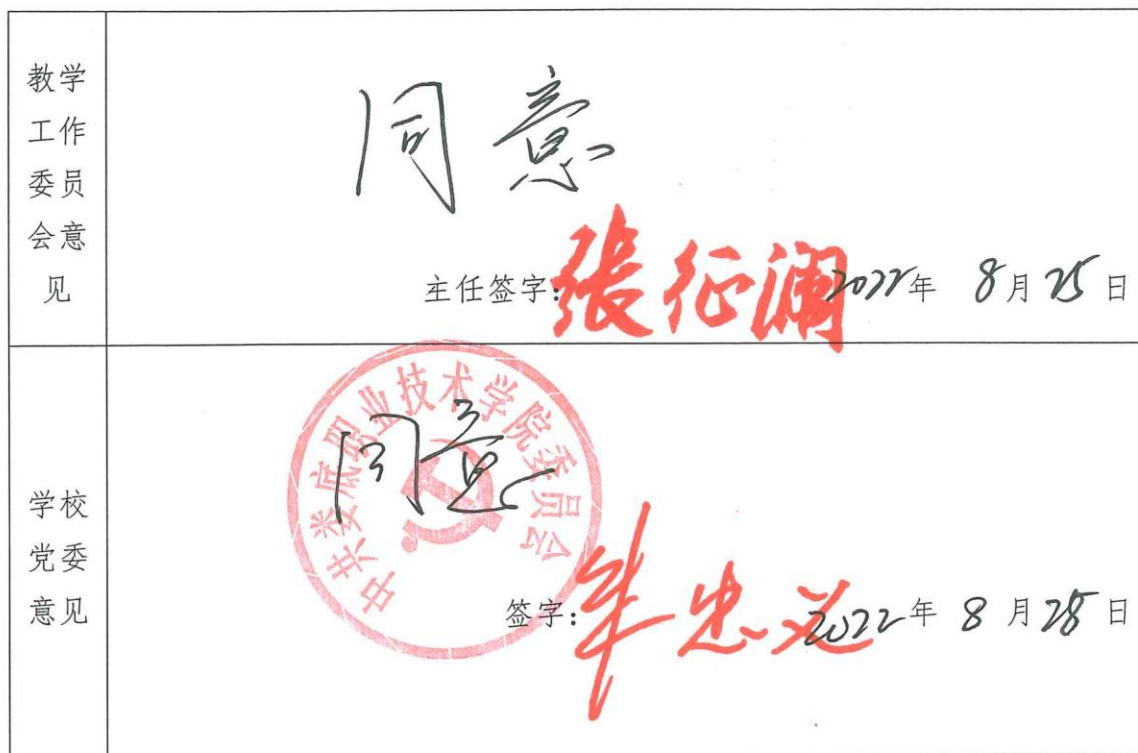 教学
工作
委员
会意
见
同意
主任签字:張征澜2022年 8月25日
学校
党委
意见
中共娄底职业技术学院委员会
同意
签字:
2022年 8月28日